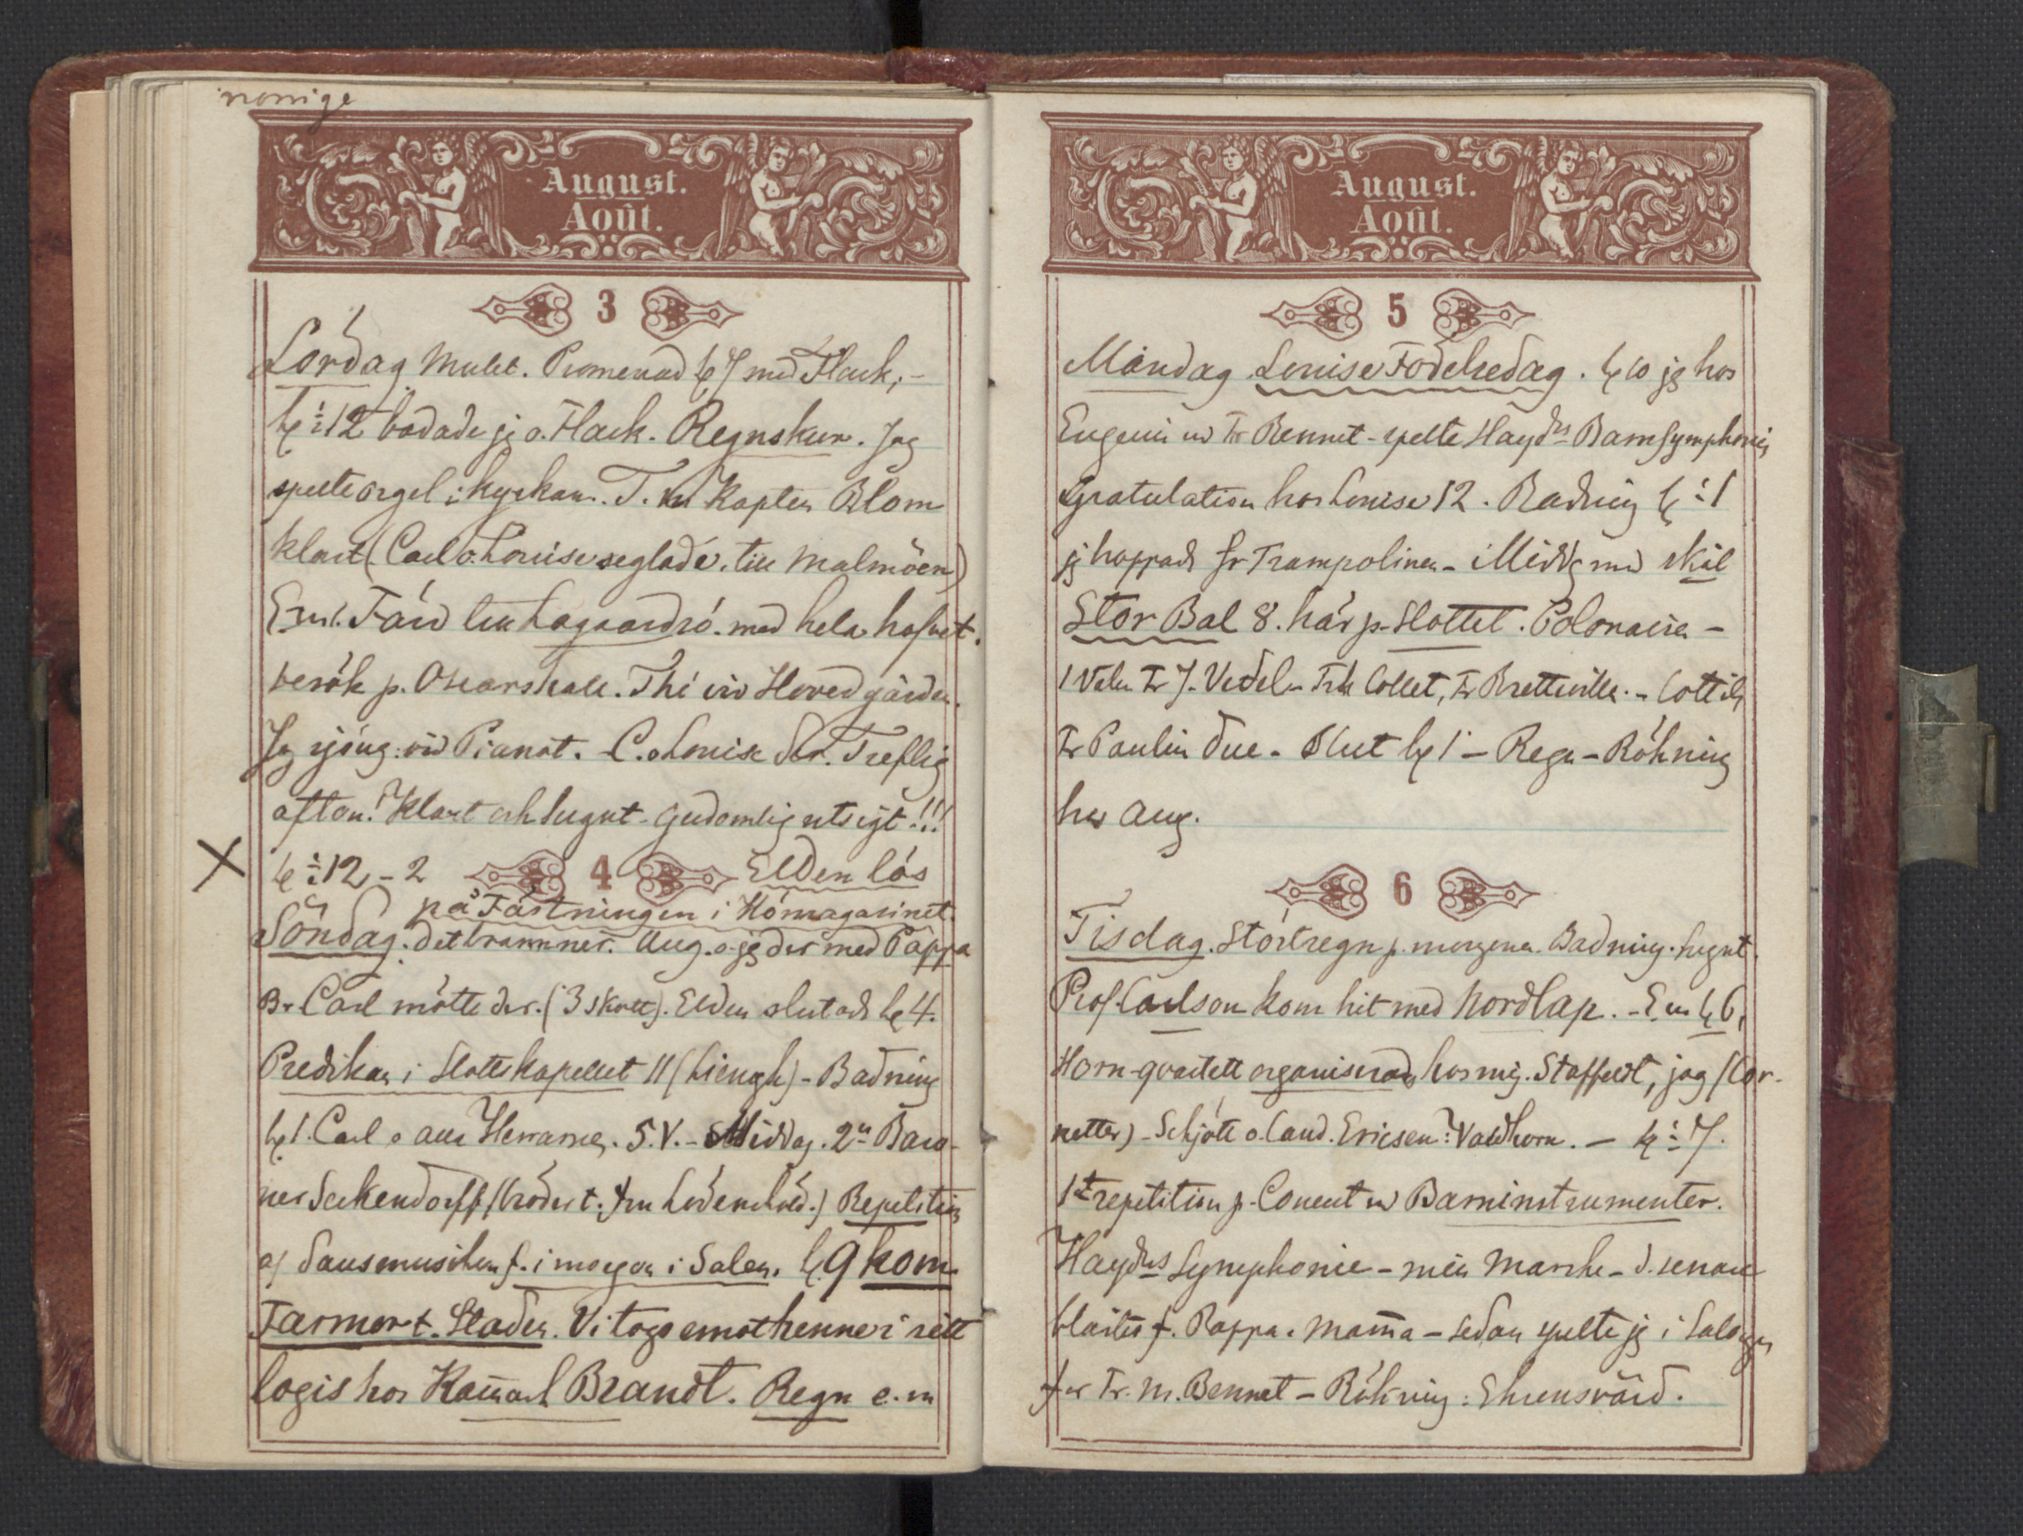 norrige
August.
Août.
3
Lördag Mulet. Promenad kl 7 med Flack,-
kl ½ 12 badade jg o. Flack. Regnskur. Jag
spelte orgel i kyrkan. T. m Kapten Blom
klart (Carl o. Louise seglade till Malmöen)
E.m. Färd till Lagaardsö med hela hofvet.
besök p. Oscarshall. Thé vid Hovedgården.
Jag sjöng vid Pianot. C. o Louise der. Treflig
afton! Klart och lugnt - gudomlig utsigt!!!
kl ½ 12 - 2
4
Elden lös
på Fästningen i Hömagasinet.
Söndag. det brann ner. Aug. o jg der med Pappa
Br Carl mötte der. (3 skott). Elden slutade kl 4.
Predikan i Slottskapellet 11 (Liengh) - Badning
kl 1. Carl o alla Herrarne. S.V. - Middag. 2ne Baro-
ner Seckendorff (bröder t. fru Lövenskiöld.) Repetition
af Dansmusiken f. i morgon i Salen. kl. 9 kom
Farmor t. Staden. Vi togo emot henne i sitt
logis hos Kam̄arh Brandt. Regn e.m
August.
Août.
5
Måndag Louise Födelsedag. kl 10 jg hos
Eugenie m Fr Bennet - spelte Haydns Barnsymphonie
Gratulation hos Louise 12. Badning kl ½ 1
jg hoppade fr Trampolinen - Middg med skål
Stor Bal 8. här p. Slottet. Polonaisen -
1 Vals Fr J. Vedel - Frk Collet, Fr Bretteville. - Cottill
Fr Paulin Due - Slut kl 1 - Regn - Rökning
hos Aug.
6
Tisdag. Störtregn p. morgonen. Badning. lugnt.
Prof. Carlson kom hit med Nordlap. - E.m kl 6,
Horn-qvartett organiserades hos mig. Staffeldt, jag (Cor-
netter) - Schjött o. Cand. Ericsen: Valdhorn. - kl ½ 7.
1st repetition p. Concert m Barninstrumenter.
Haydns Symphonie - min Marche - d. senare
blåstes f. Pappa. Mam̄a - sedan spelte jg i Salongen
för Fr. M. Bennet - Rökning: Ehrensvärd.